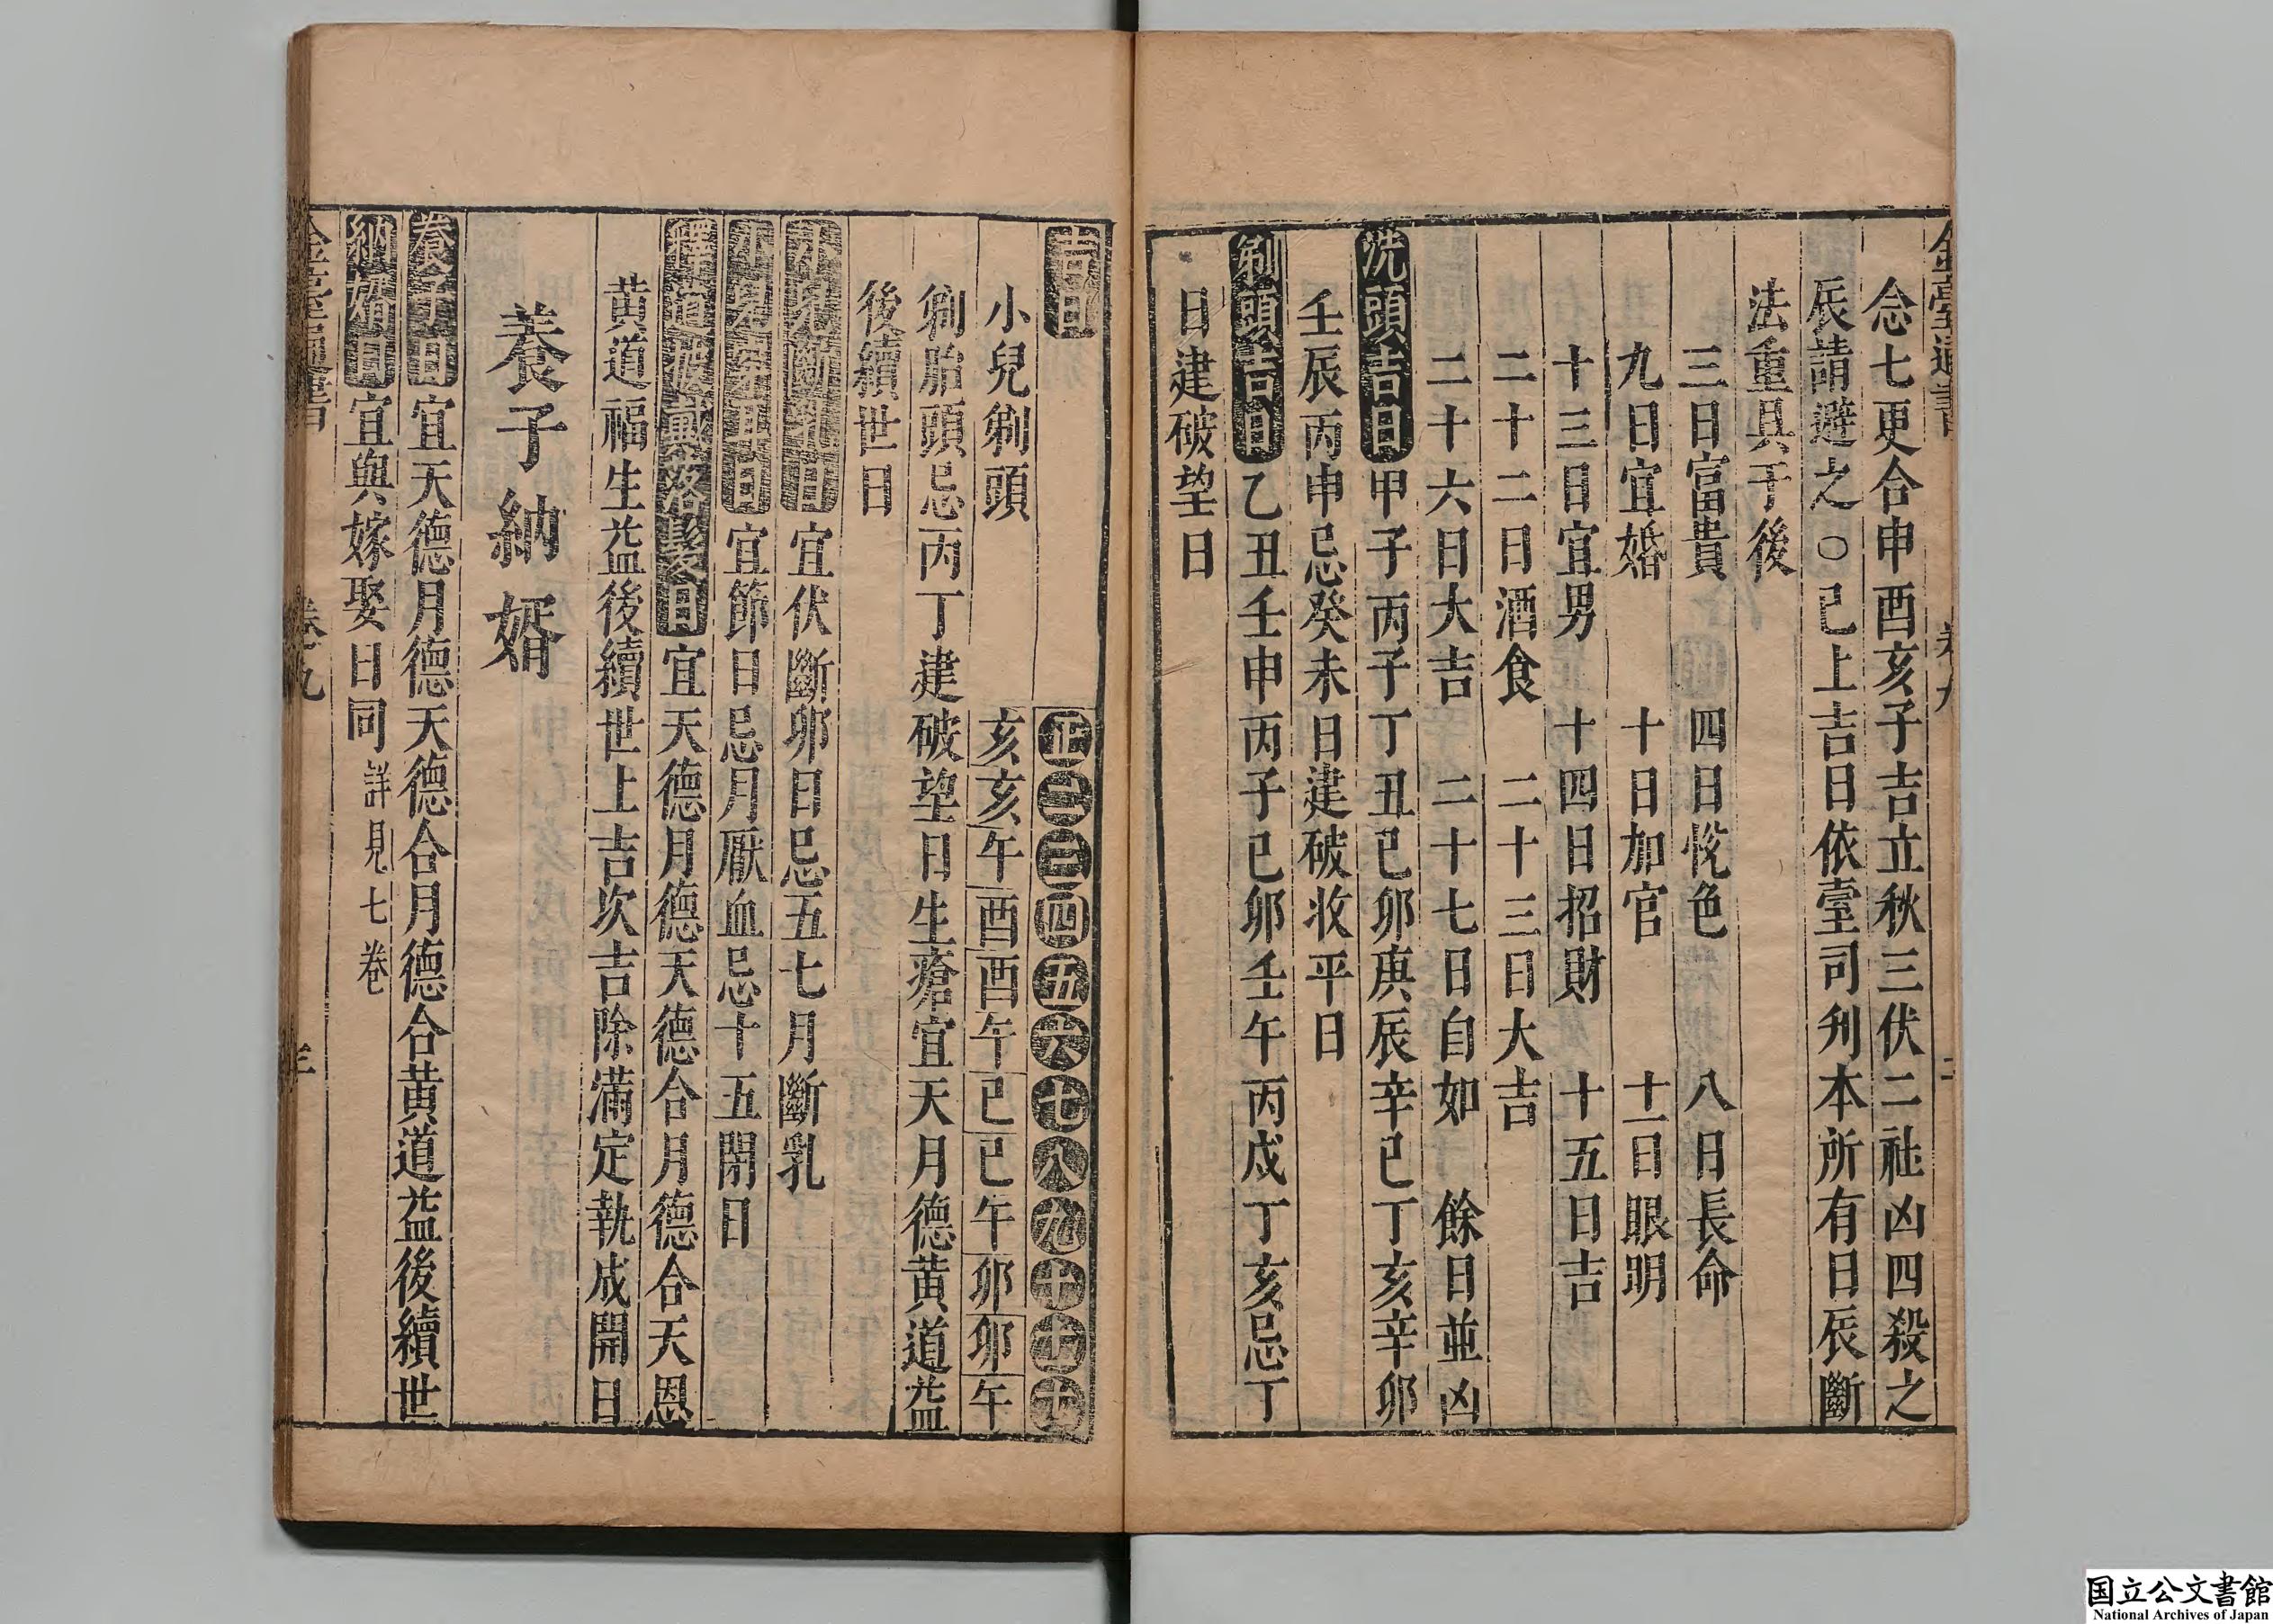 念七更合申酉亥子吉立秋三伏二社凶四殺之
辰請避之○已上吉日依臺司刋本所有日辰斷
法重具于後
三日富貴 四日悅色 八日長命
九日宜婚 十日加官 十一日眼明
十三日宜男 十四日招財 十五日吉
二十二日酒食 二十三日大吉
二十六日大吉 二十七日自如 餘日並凶
洗頭吉日 甲子丙子丁丑已卯庚辰辛已丁亥辛卯
壬辰丙申忌癸未日建破收平日
剃頭吉日 乙丑壬申丙子已卯壬午丙戌丁亥忌丁
日建破望日
吉日 正二三四五六七八九十十一十二
小兒剃頭 亥亥午酉酉午已已午卯卯午
剃胎頭忌丙丁建破望日生瘡宜天月德黃道益
後續世日
小兒斷乳日 宜伏斷卯日忌五七月斷乳
宜節日忌月厭血忌十五閉日
釋道落髮日 宜天德月德天德合月德合天恩
黃道福生益後續世上吉次吉除滿定執成開日
養子納婿
養子日 宜天德月德天德合月德合黃道益後續世
納婿日 宜與嫁娶日同 詳見七卷
卷九